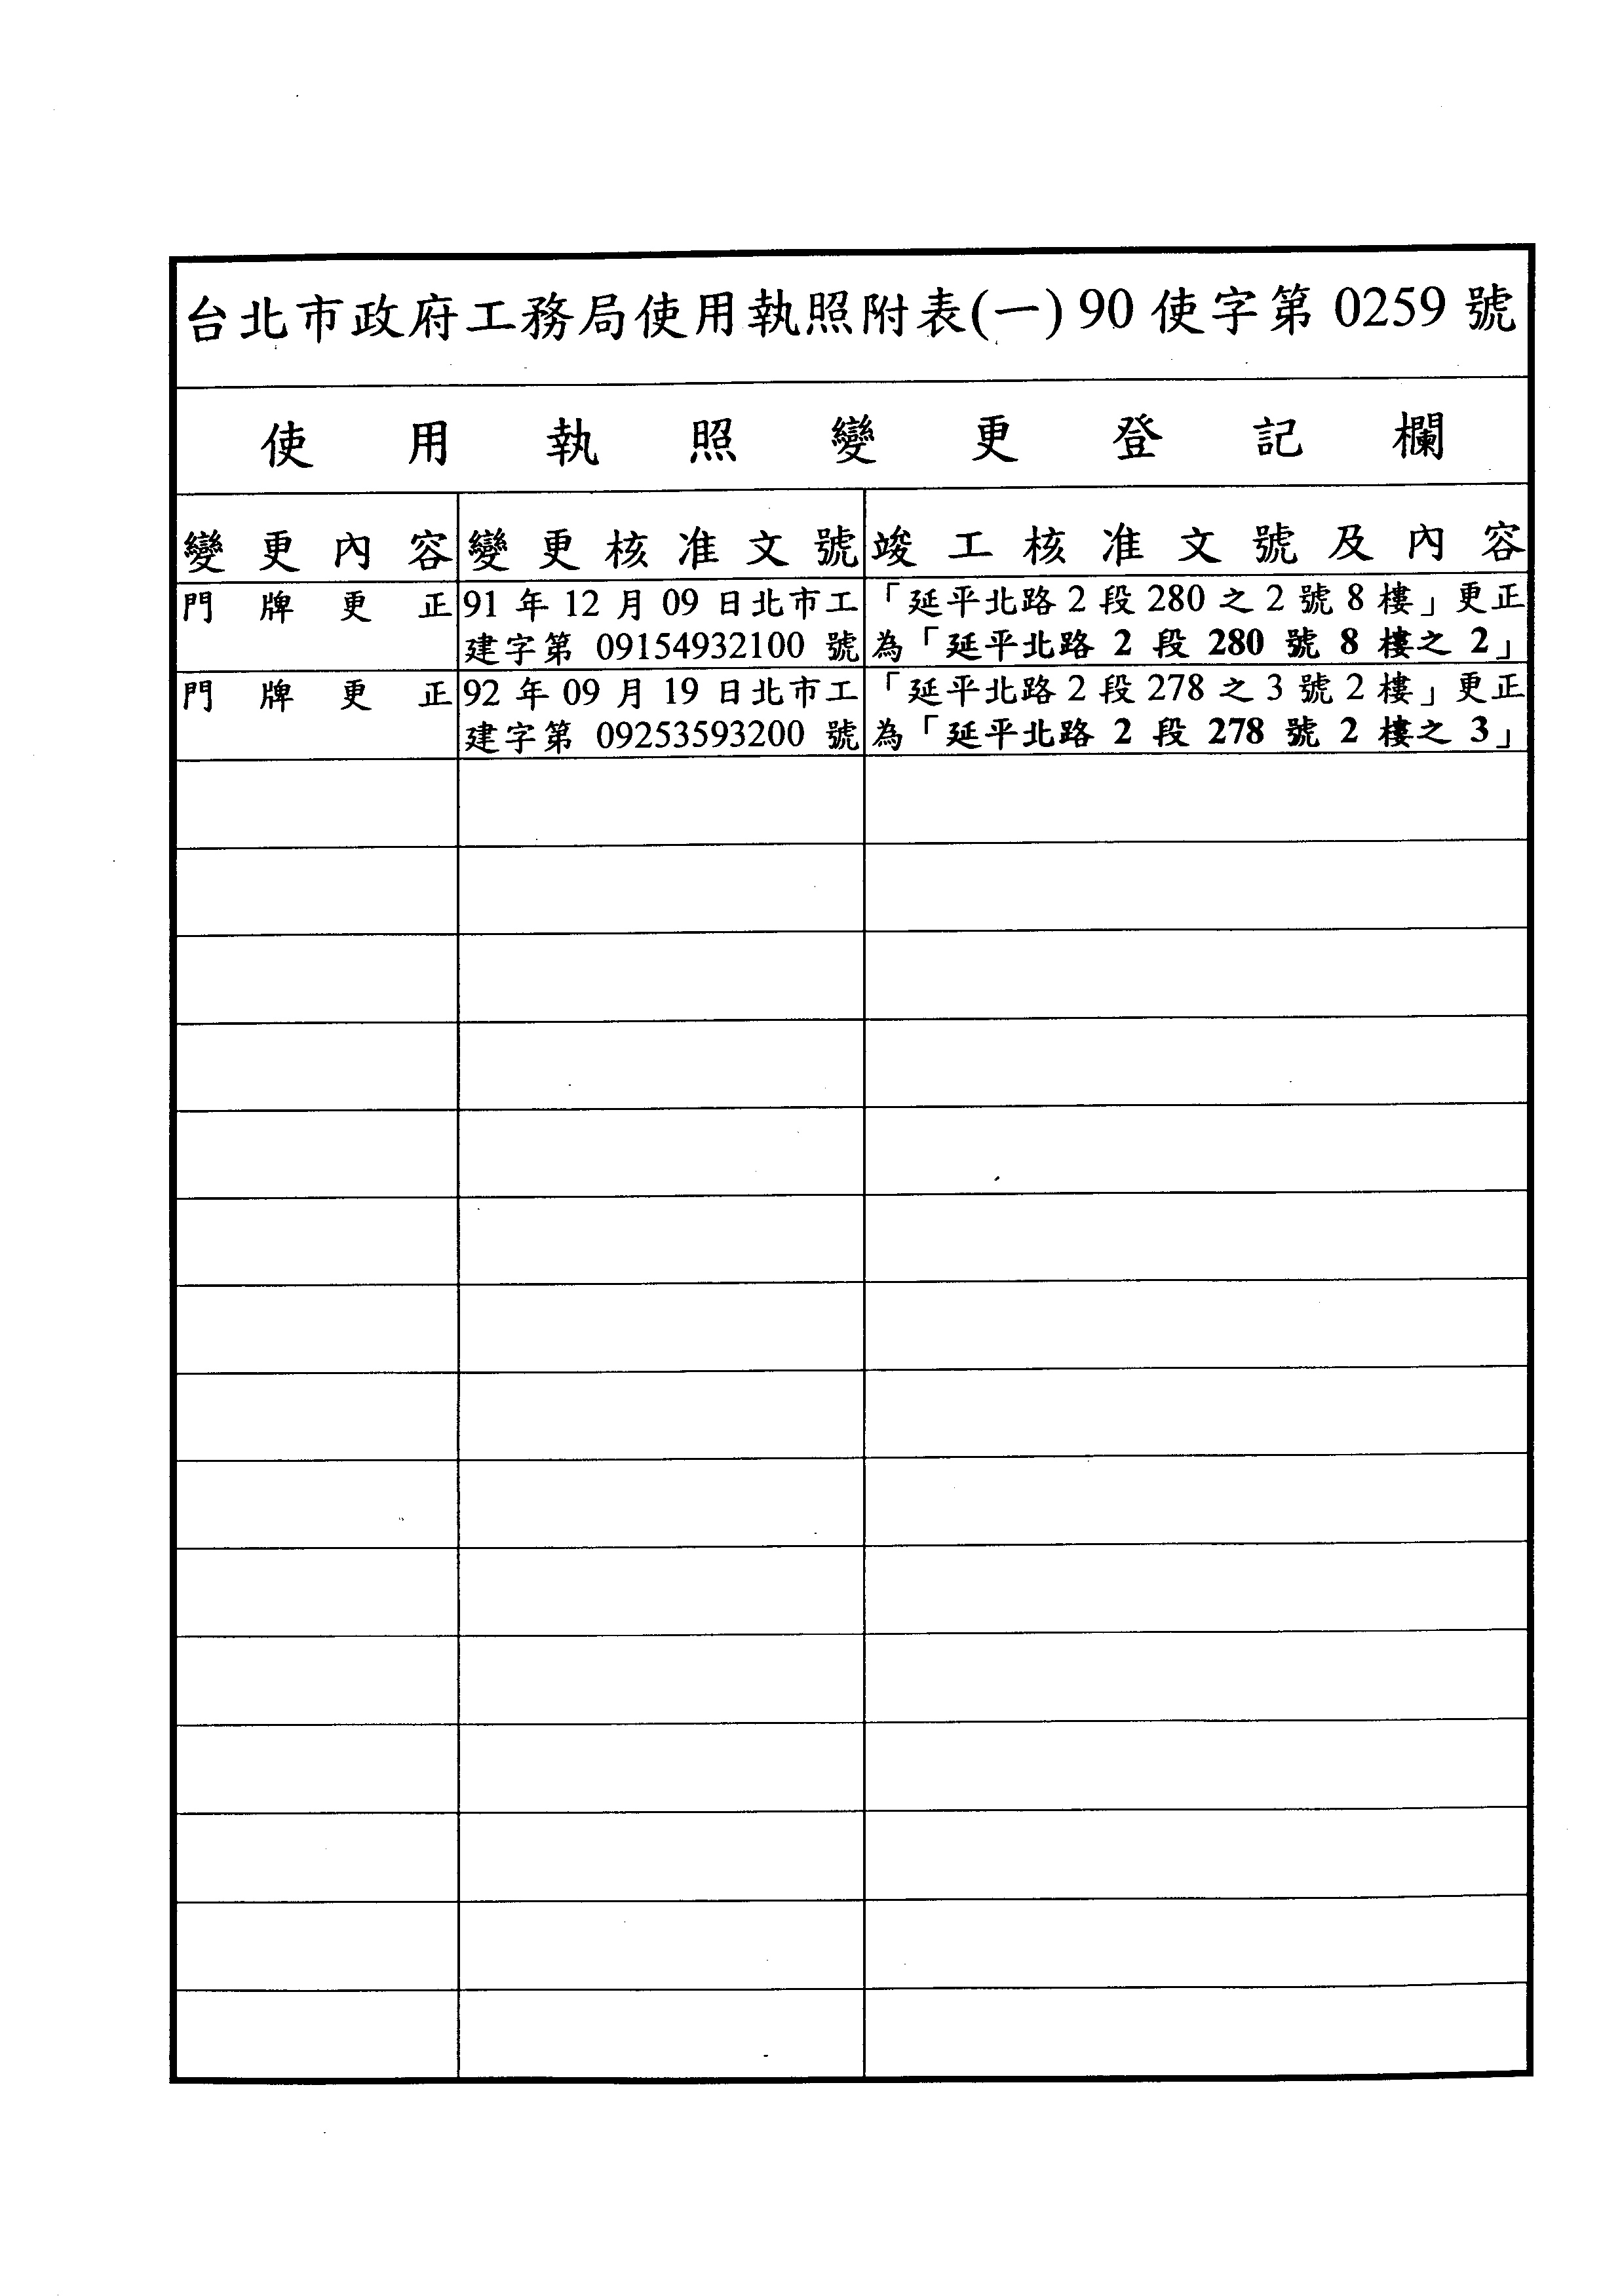 台北市政府工務局使用執照附表(一) 90 使字第 0259 號
使用執照變更登記欄
變更內容 變更核准文號 竣工核准文號及內容
門牌更正 91 年 12 月 09 日北市工 「延平北路 2 段 280 之 2 號 8 樓」更正
建字第 09154932100 號 為「延平北路 2 段 280 號 8 樓之 2」
門牌更正 92 年 09 月 19 日北市工 「延平北路 2 段 278 之 3 號 2 樓」更正
建字第 09253593200 號 為「延平北路 2 段 278 號 2 樓之 3」